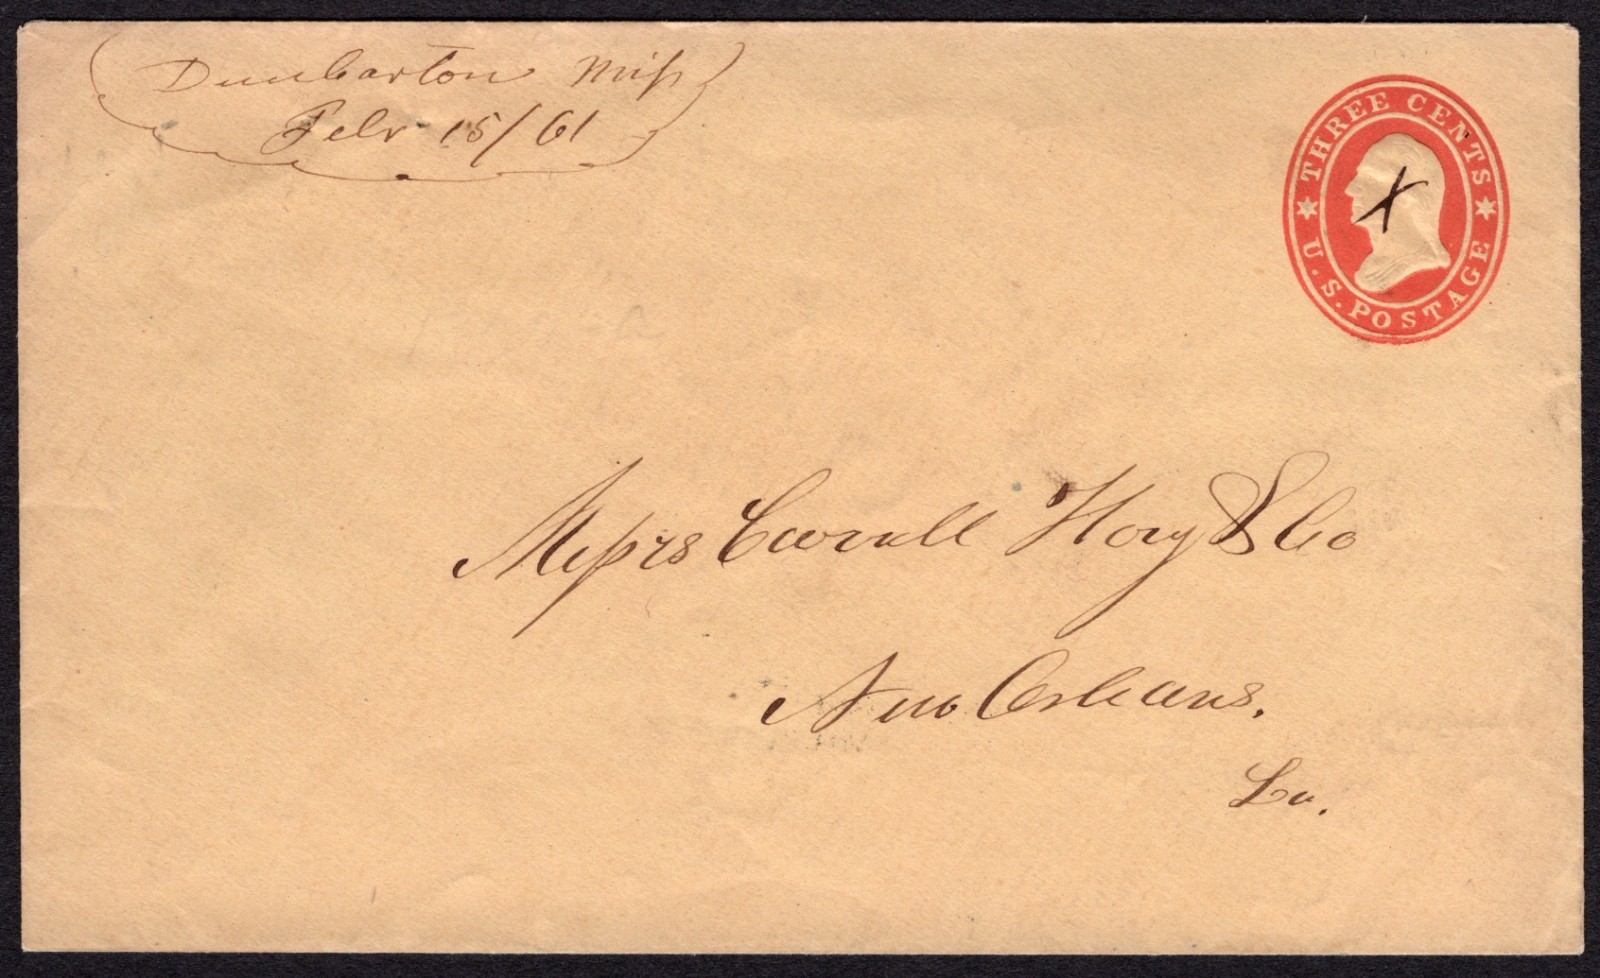 Dumbarton Miss
Febr 15/61
THREE CENTS
U.S. POSTAGE
X
Messrs Carroll Hoy & Co
New Orleans.
La.